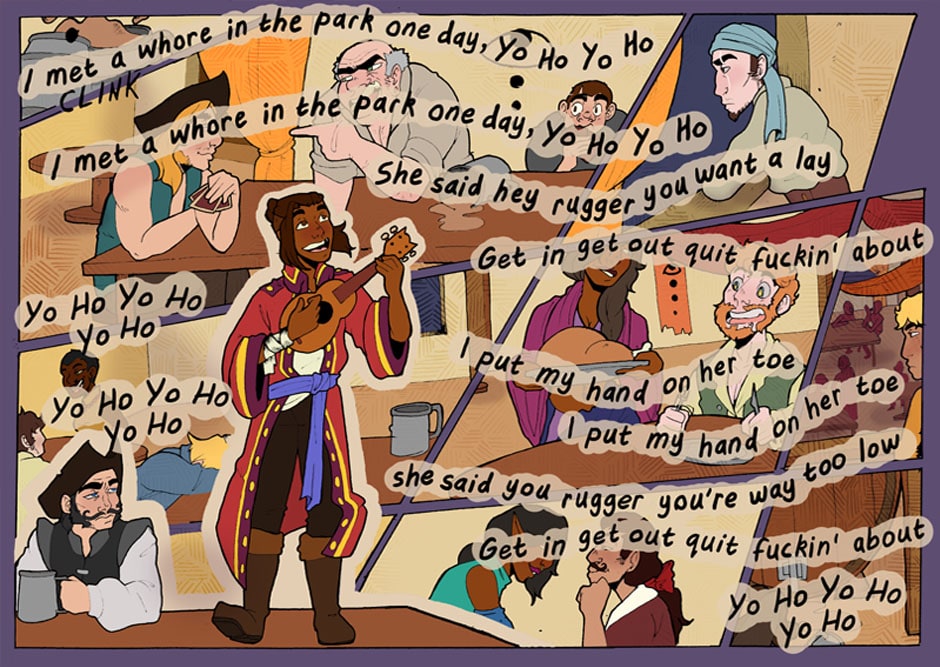 I met a whore in the park one day, Yo Ho Yo Ho
CLINK
I met a whore in the park one day, Yo Ho Yo Ho
She said, hey rugger you want a lay
Get in get out quit fuckin' about
Yo Ho Yo Ho
Yo Ho
Yo Ho Yo Ho
Yo Ho
I put my hand on her toe
I put my hand on her toe
she said you rugger you're way too low
Get in get out quit fuckin' about
Yo Ho Yo Ho
Yo Ho